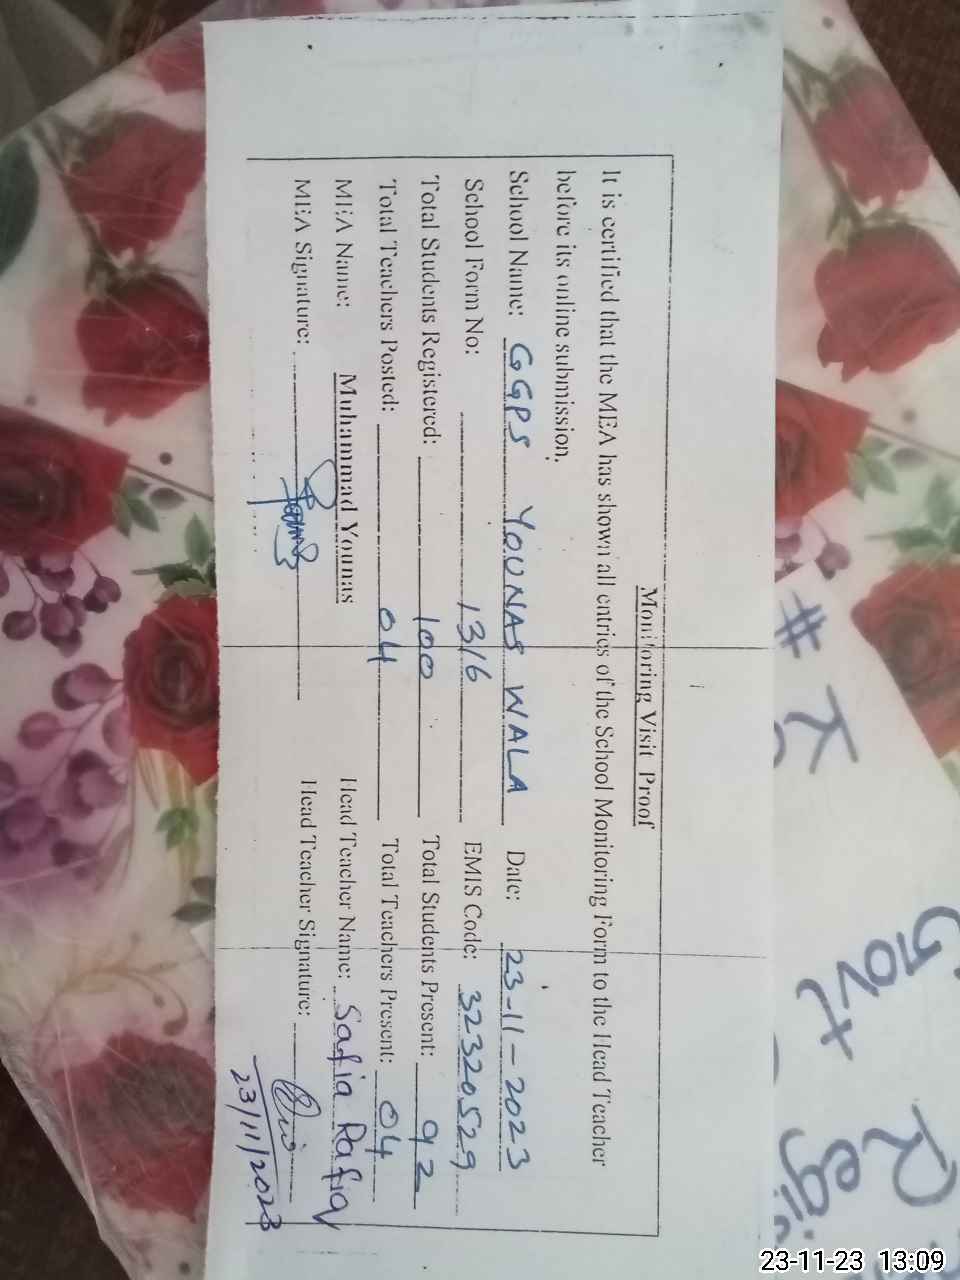 Monitoring Visit Proof
It is certified that the MEA has shown all entries of the School Monitoring Form to the Head Teacher
before its online submission.
School Name: GGPS YOUNAS WALA Date: 23-11-2023
School Form No: 1316 EMIS Code: 32320529
Total Students Registered: 100 Total Students Present: 92
Total Teachers Posted: 04 Total Teachers Present: 04
MEA Name: Muhammad Younas Head Teacher Name: Safia Rafiq
MEA Signature: Head Teacher Signature:
23/11/2023
# K
Govt
23-11-23 13:09